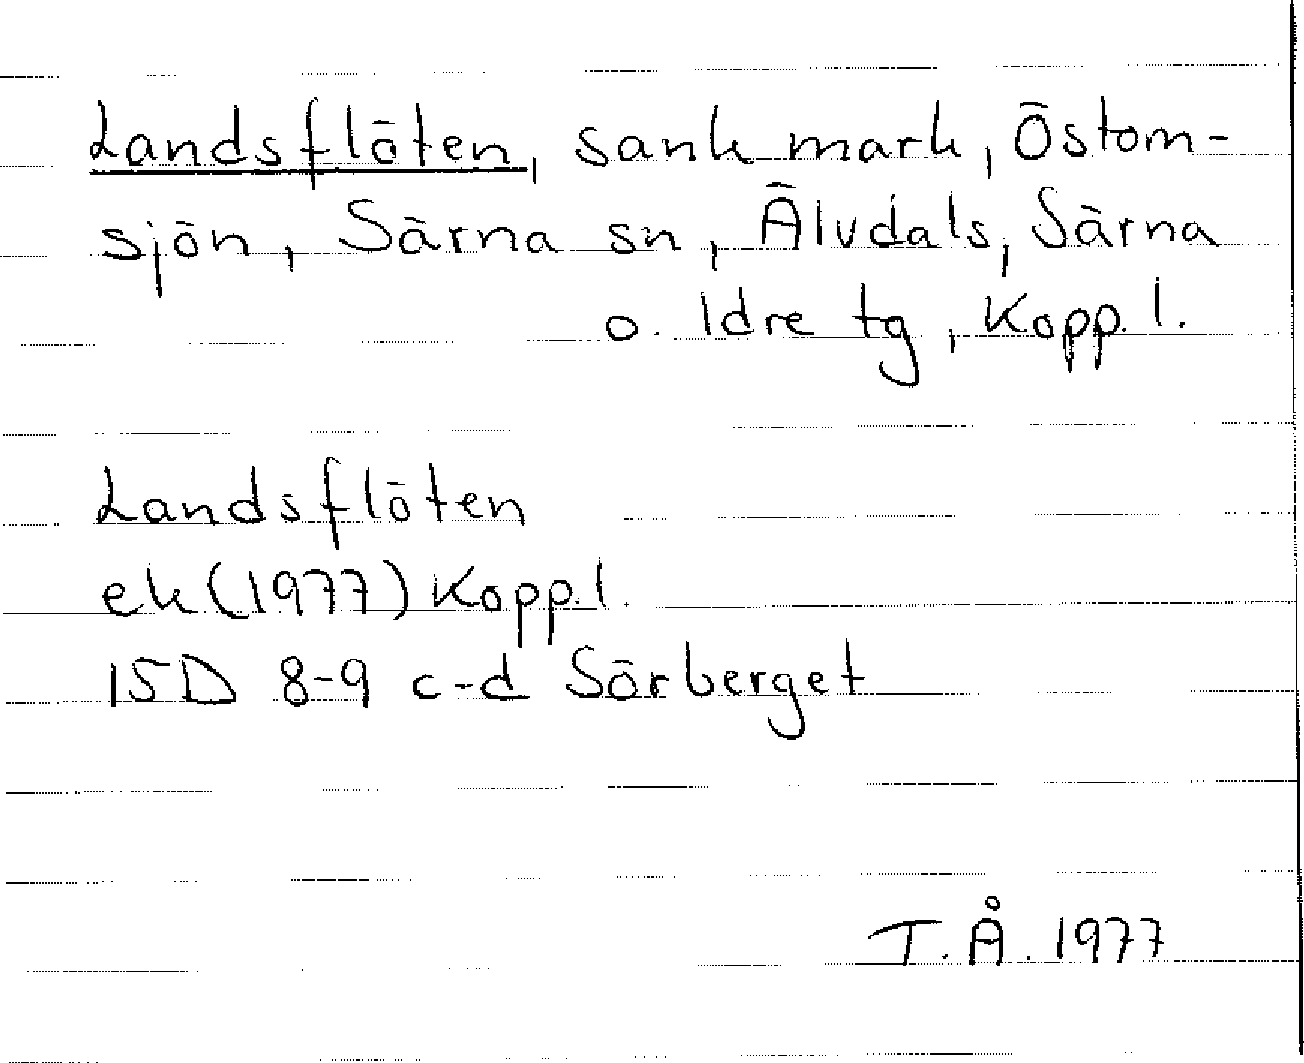 Landsflöten, sank mark, Östom-
sjön, Särna sn, Älvdals, Särna
o. Idre tg, Kopp. l.
Landsflöten
ek (1977) Kopp. l.
15D 8-9 c-d Sörberget
T. Å. 1977